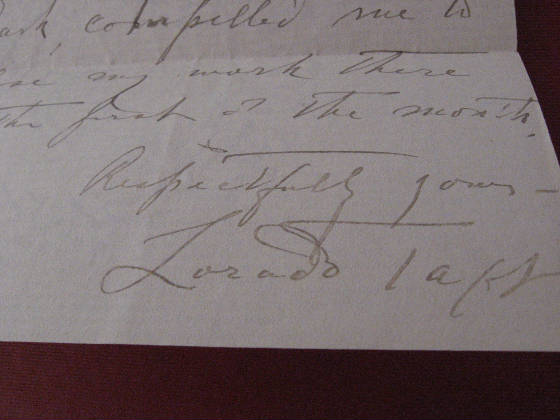 compelled me to
my work there
the first of the month.
Respectfully yours
Lorado Taft